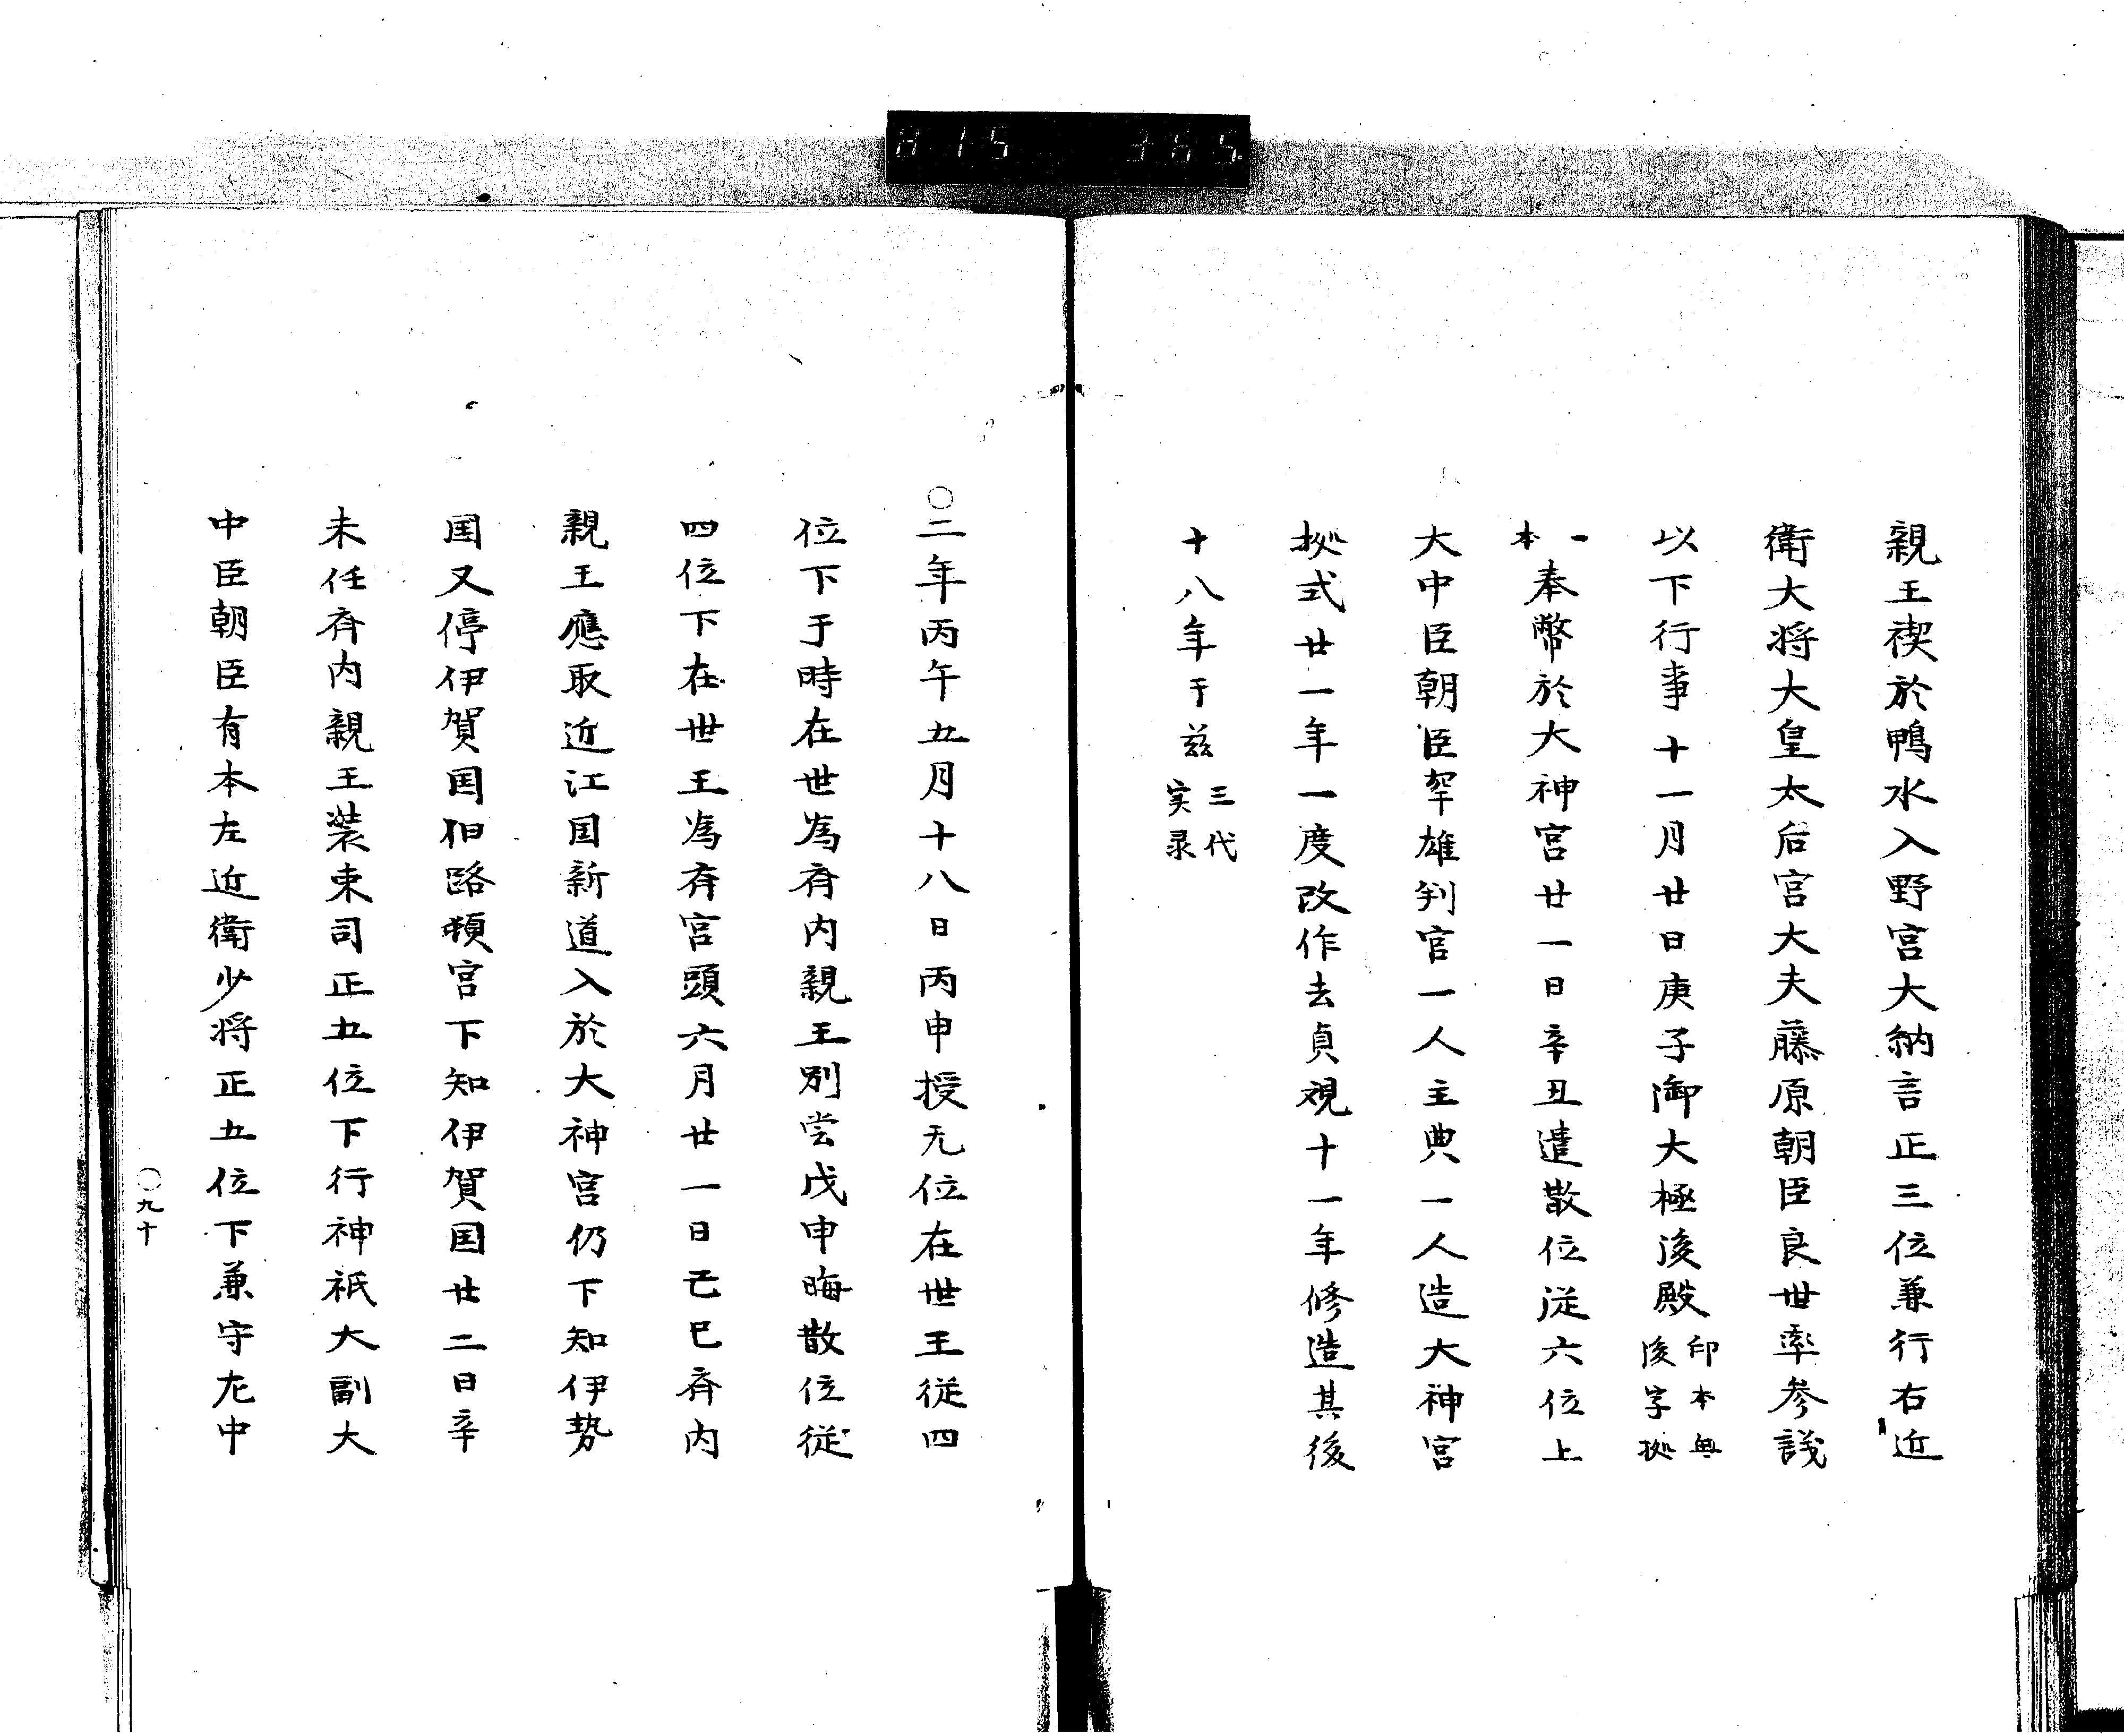 親王禊於鴨水入野宮大納言正三位兼行右近
衛大将大皇太后宮大夫藤原朝臣良世率参議
以下行事十一月廿日庚子御大極後殿印本無後字拠
一本奉幣於大神宮廿一日辛丑遣散位従六位上
大中臣朝臣罕雄判官一人主典一人造大神宮
拠式廿一年一度改作去貞観十一年修造其後
十八年于茲三代実录
〇二年丙午五月十八日丙申授无位在世王従四
位下于時在世為斉内親王別当戊申晦散位従
四位下在世王為斉宮頭六月廿一日己巳斉内
親王應取近江国新道入於大神宮仍下知伊勢
国又停伊賀国旧路頓宮下知伊賀国廿二日辛
未任斉内親王装束司正五位下行神祇大副大
中臣朝臣有本左近衛少将正五位下兼守左中
〇九十
815 365